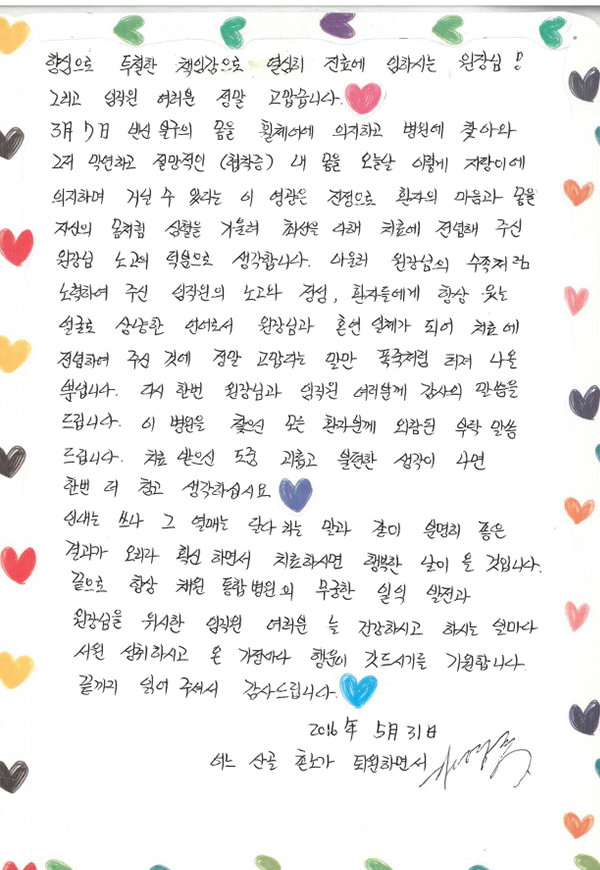 항심으로 투철한 책임감으로 열심히 진료에 임하시는 원장님!!
그리고 임직원 여러분 정말 고맙습니다.
3月 7日 만신 불구의 몸을 휠체어에 의지하고 병원에 찾아와
그저 막연하고 절망적인 (협착증) 내 몸을 오늘날 이렇게 지팡이에
의지하며 거닐 수 있다는 이 영광은 진정으로 환자의 마음과 몸을
자신의 몸처럼 심혈을 기울려 최선을 다해 치료에 전념해 주신
원장님 노고의 덕분으로 생각합니다. 아울러 원장님의 수족처럼
노력하여 주신 임직원의 노고와 정성, 환자들에게 항상 웃는
얼굴로 상냥한 언어로서 원장님과 혼연 일체가 되어 치료에
전념하여 주신 것에 정말 고맙다는 말만 폭죽처럼 터져 나올
뿐입니다. 다시 한번 원장님과 임직원 여러분께 감사의 말씀을
드립니다. 이 병원을 찾으신 모든 환자분께 외람된 부탁 말씀
드립니다. 치료 받으신 도중 괴롭고 불편한 생각이 나면
한번 더 참고 생각하십시요
인내는 쓰나 그 열매는 달다 하는 말과 같이 분명히 좋은
결과가 오리라 확신 하면서 치료하시면 행복한 날이 올 것입니다.
끝으로 항상 채원 통합병원의 무궁한 일익 발전과
원장님을 위시한 임직원 여러분 늘 건강하시고 하시는 일마다
서원 성취하시고 온 가정마다 행운이 깃드시기를 기원합니다.
끝까지 읽어 주셔서 감사드립니다.
2016年 5月 31日
어느 산골 촌노가 퇴원하면서